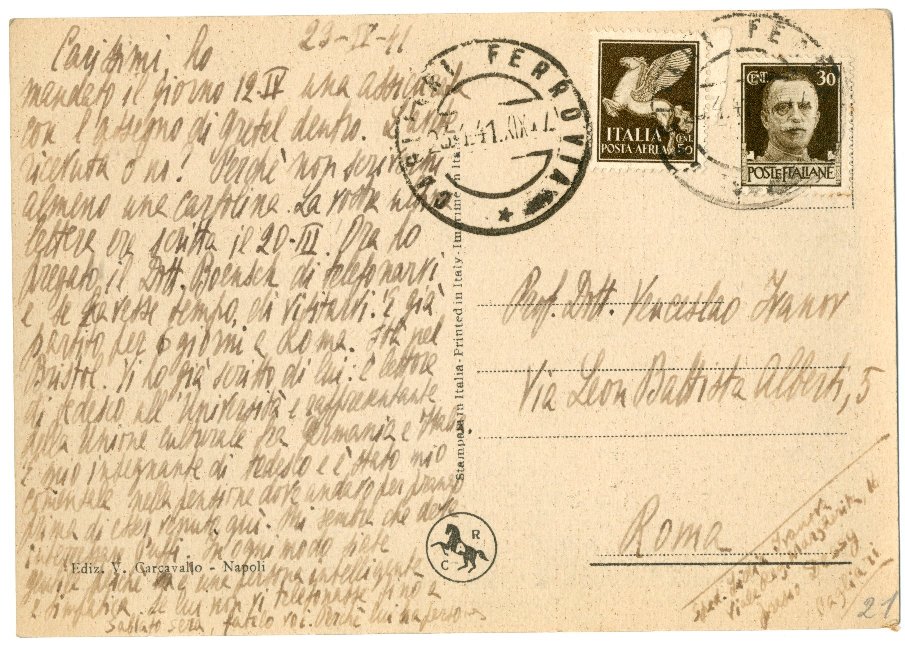 23-IV-41
Carissimi, ho
mandato il giorno 12-IV una
con l'assegno di dentro.
ricevuta o no? Perchè non scrivete
almeno una cartolina. La vostra
lettera era scritta il 20-III. Ora ho
pregato il Dott. Boensch di telefonarvi
e se avesse tempo, di visitarvi. È già
partito per 6 giorni a Roma. Sta nel
Bristol. Vi ho già scritto di lui: è lettore
di tedesco all'università e rappresentante
della Unione culturale fra Germania e
È mio insegnante di tedesco e è stato mio
nella pensione dove andavo per pranzo
prima di esser venuta quì. Mi sembra che
tutti. In ogni modo siate
una persona intelligente
e simpatica. Se lui non vi telefonasse fino a
Sabato sera, fatelo voi. Perchè lui
Ediz. V. Carcavallo - Napoli
Stampata in Italia - Printed in Italy - Imprimé en Italie
C R
FERROVIA
23.4.41.XIX
ITALIA
POSTA-AEREA
CENT 50
CENT. 30
POSTE ITALIANE
Prof. Dott. Venceslao Ivanov
Via Leon Battista Alberti, 5
Roma
Ivanov
Viale Margherita
Cagliari
21